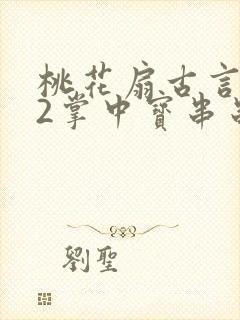 桃花扇古言
2掌中寳串
劉聖